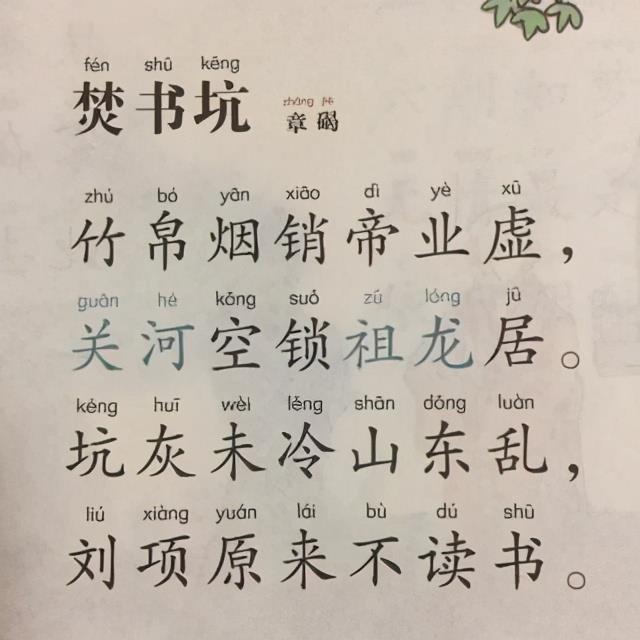 fén shū kēng
焚书坑 章碣
zhú bó yān xiāo dì yè xū
竹帛烟销帝业虚，
guān hé kōng suǒ zǔ lóng jū
关河空锁祖龙居。
kēng huī wèi lěng shān dōng luàn
坑灰未冷山东乱，
liú xiàng yuán lái bù dú shū
刘项原来不读书。